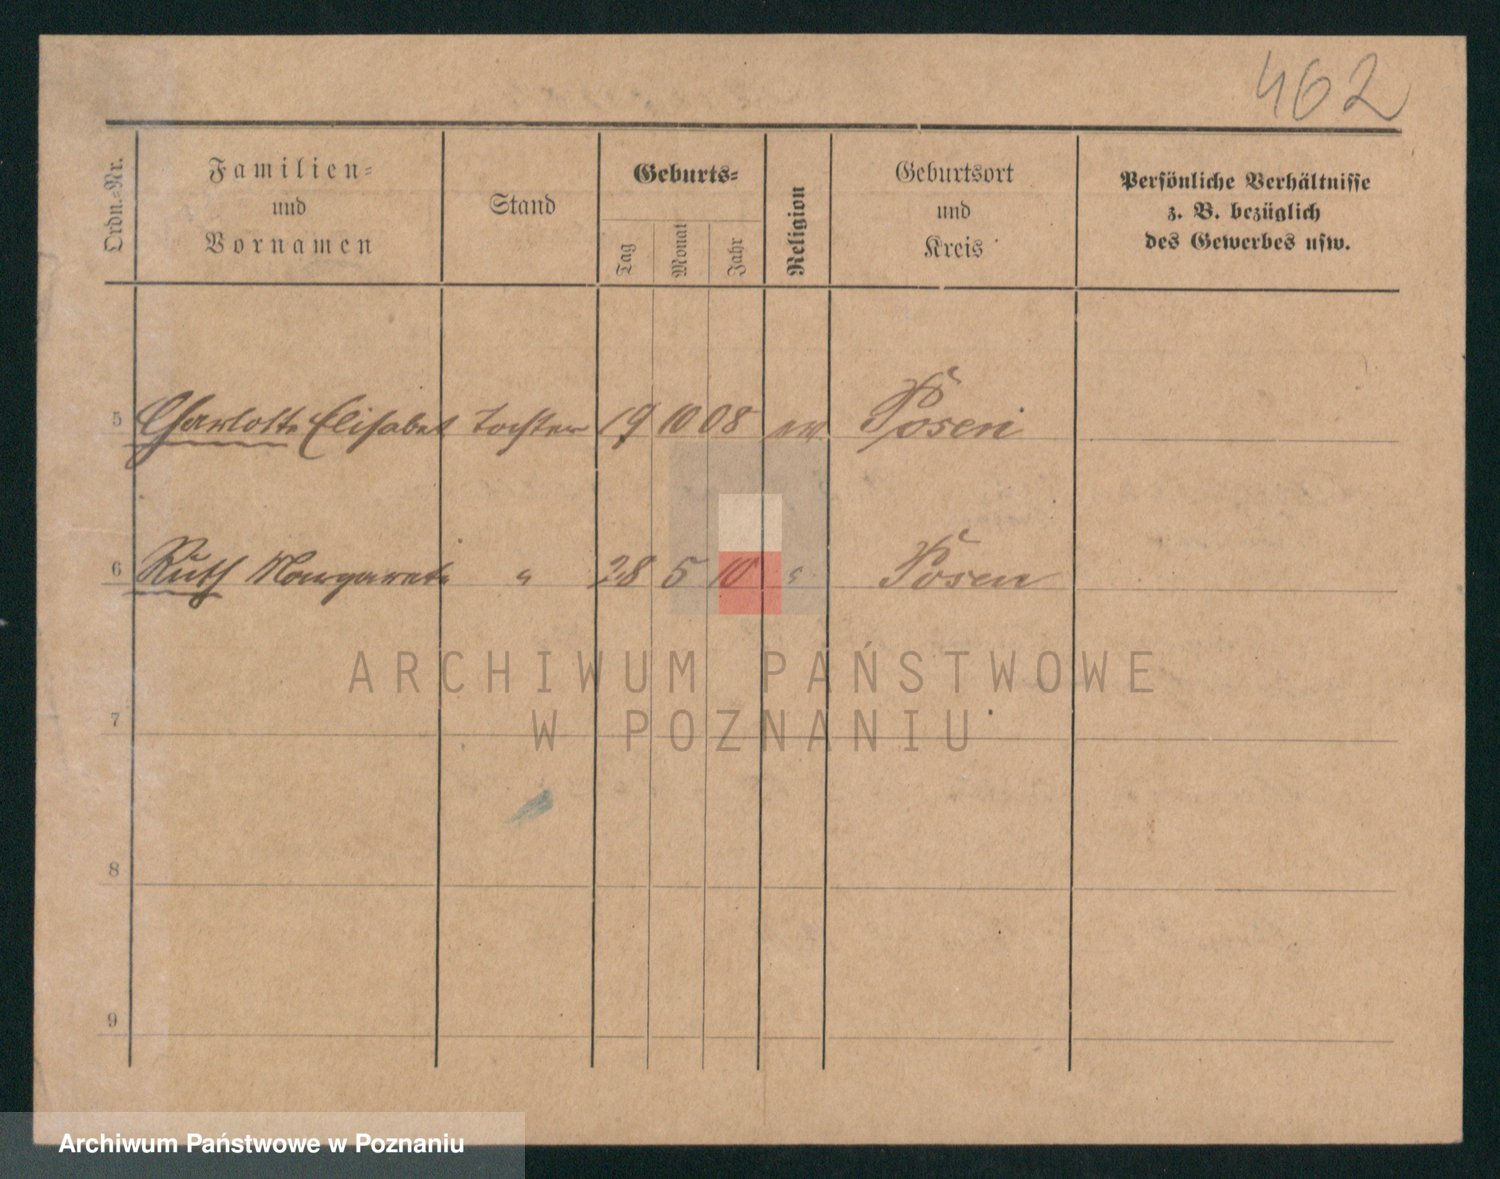 462
Ordn.-Nr.
Familien-
und
Vornamen
Stand
Geburts-
Tag
Monat
Jahr
Religion
Geburtsort
und
Kreis
Persönliche Verhältnisse
z. B. bezüglich
des Gewerbes usw.
5 Charlotte Elisabet Tochter 19 10 08 ev. Posen
6 Ruth Margarete " 28 5 10 " Posen
ARCHIWUM PAŃSTWOWE
W POZNANIU
7
8
9
Archiwum Państwowe w Poznaniu